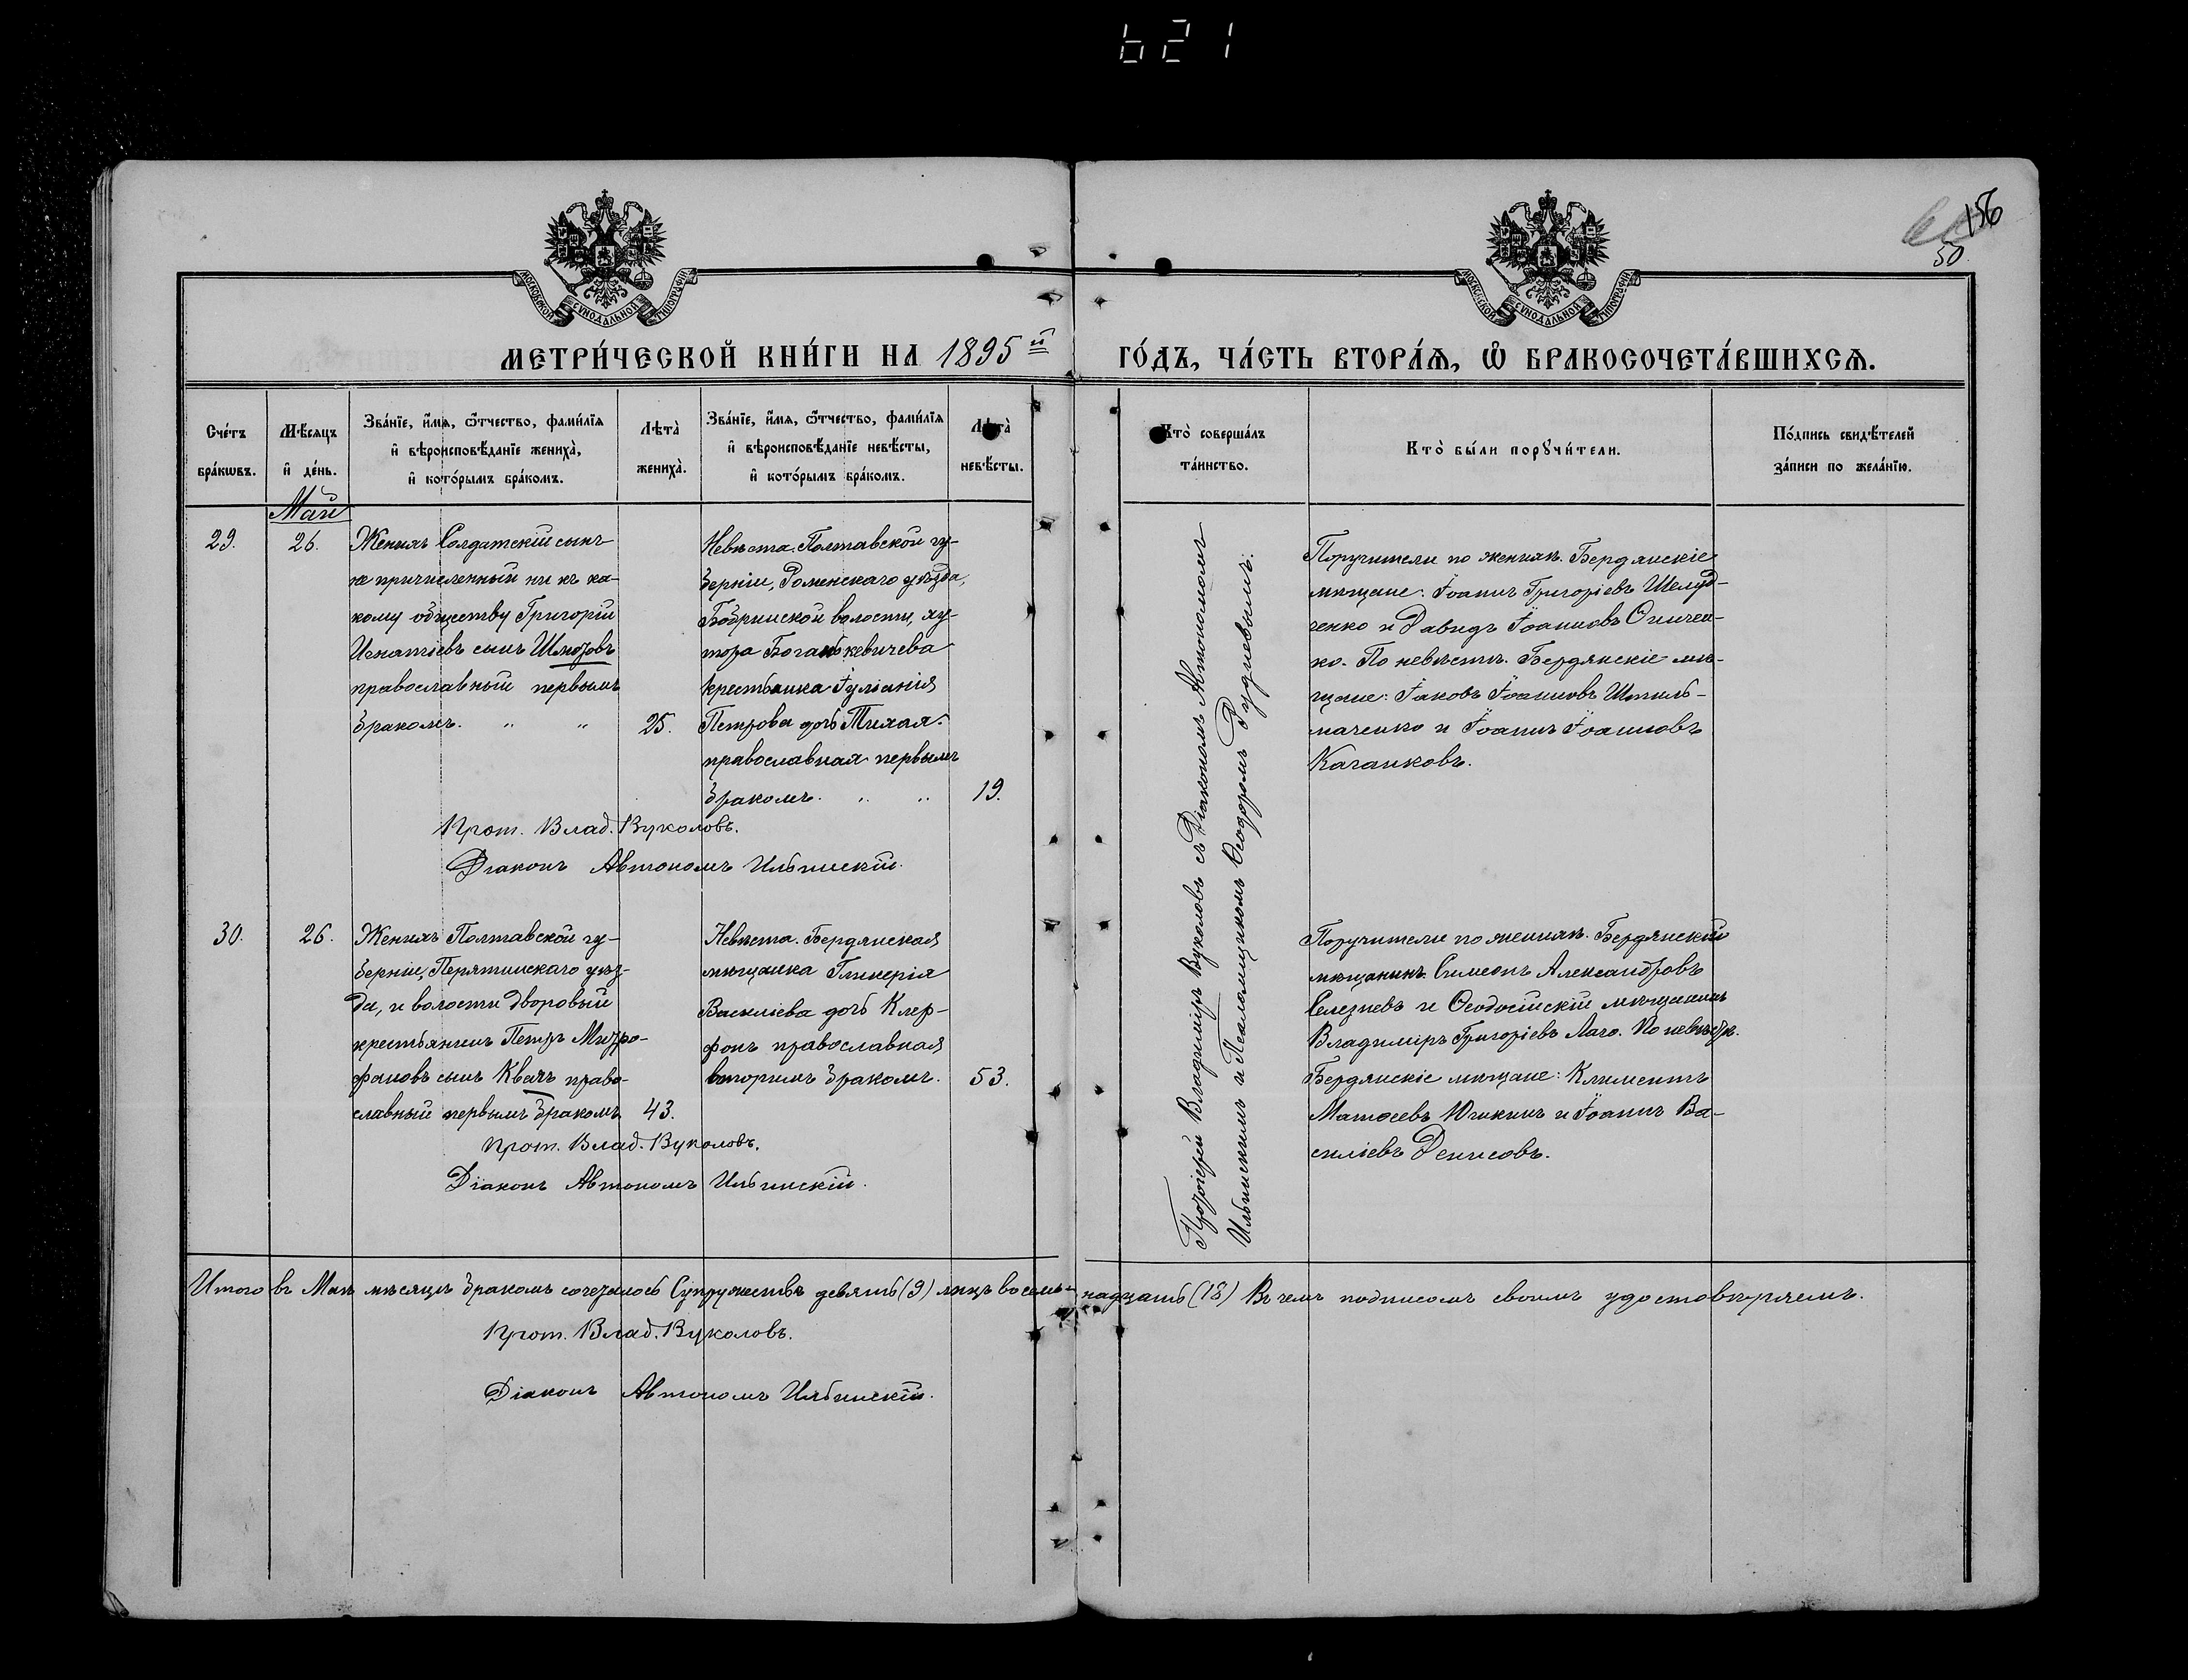 621
156
50
МОСКОВСКОЙ СѴНОДАЛЬНОЙ ТИПОГРАФІИ
МОСКОВСКОЙ СѴНОДАЛЬНОЙ ТИПОГРАФІИ
МЕТРИ́ЧЕСКОЙ КНИ́ГИ НА 1895й ГО́ДЪ, ЧА́СТЬ ВТОРА́Ѧ, Ѽ БРАКОСОЧЕТА́ВШИХСѦ.
Сче́тъ бра́кѡвъ.
Мѣ́сяцъ и҆ де́нь.
Зва́нїе, и҆́мя, ѻ҆́тчество, фами́лїя и҆ вѣроисповѣ́данїе жениха̀, и҆ кото́рымъ бра́комъ.
Лѣта̀ жениха̀.
Зва́нїе, и҆́мя, ѻ҆́тчество, фами́лїя и҆ вѣроисповѣ́данїе невѣ́сты, и҆ кото́рымъ бра́комъ.
Лѣта̀ невѣ́сты.
Кто̀ соверша́лъ та́инство.
Кто̀ бы́ли порꙋчи́тели.
По́дпись свидѣ́телей за́писи по жела́нїю.
Май
29.
26.
Женихъ Солдатскій сынъ
не причисленный ни къ ка-
кому обществу Григорій
Игнатіевъ сынъ Шмоновъ
православный первымъ
бракомъ. " "
25.
Невѣста. Полтавской гу-
берніи, Роменскаго уѣзда,
Бобринской волости, ху-
тора
крестьянка Іуліанія
Петрова дочь Тихая.
православная первымъ
бракомъ. " "
19.
Прот. Влад. Вуколовъ.
Діаконъ Автономъ Ильинскій.
Протоіерей Владиміръ Вуколовъ съ Діакономъ Автономомъ
Ильинскимъ и Псаломщикомъ Ѳеодоромъ Рудневымъ.
Поручители по женихѣ. Бердянскіе
мѣщане: Іоаннъ Григоріевъ Шелуд-
ченко и Давидъ Іоанновъ Оничен-
ко. По невѣстѣ. Бердянскіе мѣ-
щане: Іаковъ Іоанновъ Шпиль-
маченко и Іоаннъ Іоанновъ
Качанковъ.
30.
26.
Женихъ Полтавской гу-
берніи, Пирятинскаго уѣз-
да, и волости дворовый
крестьянинъ Петръ Митро-
фановъ сынъ Квачъ право-
славный первымъ бракомъ
43.
Невѣста. Бердянская
мѣщанка Гликерія
Василіева дочь Ктер-
фонъ православная
вторымъ бракомъ.
53.
Прот. Влад. Вуколовъ.
Діаконъ Автономъ Ильинскій.
Поручители по женихѣ. Бердянскій
мѣщанинъ Симеонъ Александровъ
Селезневъ и Ѳеодосійскій мѣщанинъ
Владиміръ Григоріевъ Лаго. По невѣстѣ.
Бердянскіе мѣщане: Климентъ
Матѳеевъ Юшкинъ и Іоаннъ Ва-
силіевъ Денисовъ.
Итого въ Маѣ мѣсяцѣ бракомъ сочеталось Супружествъ девять (9) лицъ восемь-надцать (18) Въ чемъ подписомъ своимъ удостовѣряемъ.
Прот. Влад. Вуколовъ.
Діаконъ Автономъ Ильинскій.